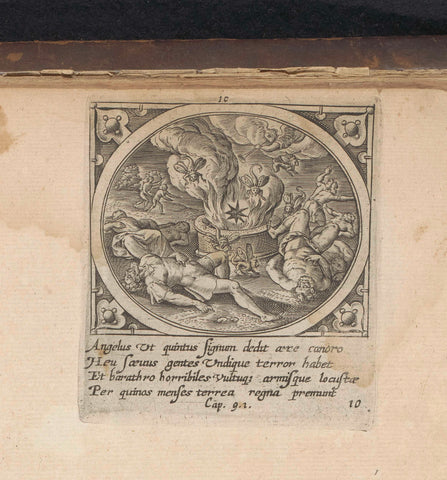 10
Angelus Ut quintus signum dedit ære canoro
Heu sævus gentes Undique terror habet
Et barathro horribiles Vultuq; armisque locustæ
Per quinos menses terrea regna premunt
Cap. 9.1.
10
1